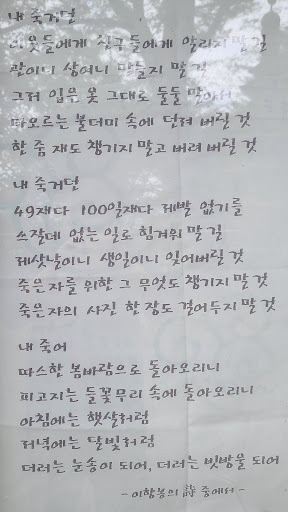 내 죽거던
이웃들에게 친구들에게 알리지 말 길
관이니 상여니 만들지 말 것
그저 입은 옷 그대로 둘둘 말아서
타오르는 불더미 속에 던져 버릴 것
한 줌 재도 챙기지 말고 버려 버릴 것
내 죽거던
49재다 100일재다 제발 없기를
쓰잘데 없는 일로 힘겨워 말 길
제삿날이니 생일이니 잊어버릴 것
죽은자를 위한 그 무엇도 챙기지 말 것
죽은자의 사진 한 장도 걸어두지 말 것
내 죽어
따스한 봄바람으로 돌아오리니
피고지는 들꽃무리 속에 돌아오리니
아침에는 햇살처럼
저녁에는 달빛처럼
더러는 눈송이 되어, 더러는 빗방울 되어
- 이함봉의 詩 중에서 -